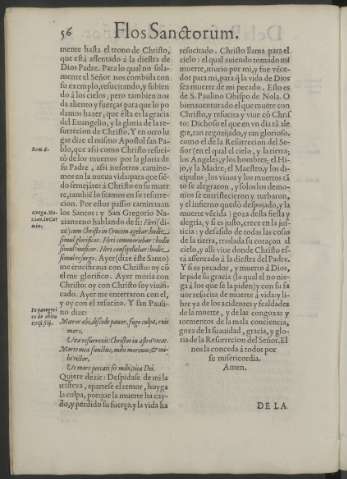 56 Flos Sanctorum.
mente hasta el trono de Christo,
que está assentado á la diestra de
Dios Padre. Para lo qual no sola-
mente el Señor nos combida con
su exemplo, resucitando, y subien
do á los cielos, pero tambien nos
da aliento y fuerças para que lo po
damos hazer, que esta es la gracia
del Euangelio, y la gloria de la re-
surrecion de Christo. Y en otro lu
gar dize el mismo Apostol san Pa-
blo, que assi como Christo resuci-
tó de los muertos por la gloria de
su Padre, assi nosotros camine-
mos en la nueua vida: para que sie-
do semejantes á Christo en su muer
te, tambié lo seamos en su resurre-
cion. Por estos passos caminaron
los Santos: y San Gregorio Na-
zianzeno hablando de si: Heri (di
ze) cum Christo in Crucem agebar hodie
simul glorificor. Heri commoriebar: hodie
simul viuificor. Heri consepeliebar: hodie
simul resurgo. Ayer (dize este Santo)
me crucificaua con Christo: oy có
el me glorifico. Ayer moria con
Christo: oy con Christo soy viuifi-
cado. Ayer me enterraron con el,
y oy con el resucito. Y san Pauli-
no dize:
Quiere dezir: Despidase de mi la
tristeza, apartese el temor, huyga
la culpa, porque la muerte ha cay-
do, y perdido su fuerça, y la vida ha
resucitado. Christo llama para el
cielo: el qual auiendo tomado mi
muerte, murio por mi, y fue vēce-
dor para mi, para q̃ la vida de Dios
sea muerte de mi pecado. Esto es
de S. Paulino Obispo de Nola. O
bienauenturado el que muere con
Christo, y resucita y viue có Chris
to: Dichoso el que en vn dia tā ale
gre, tan regozijado, y tan glorioso,
como el de la Resurreccion del Se-
ñor (en el qual el cielo, y la tierra,
los Angeles, y los hombres, el Hi-
jo, y la Madre, el Maestro, y los di-
cipulos, los viuos y los muertos cā
to se alegraron, y solos los demo-
nios se entristecieron y turbaron,
y el infierno quedó despojado, y la
muerte vēcida) goza desta fiesta y
alegria, y si es justo, crece en la jus
ticia: y desasido de todas las cosas
de la tierra, traslada su coraçon al
cielo, y alli viue donde Christo es-
tá assentado á la diestra del Padre.
Y si es pecador, y muerto á Dios,
le pide su gracia (la qual él no nie-
ga á los que se la piden) y con su fa
uor resucita de muerte á vida: y li-
bre ya de los acidentes y fealdades
de la muerte, y de las congoxas y
tormentos de la mala conciencia,
goza de la suauidad, gracia, y glo-
ria de la Resurrecion del Señor. El
nos la conceda á todos por
su misericordia.
Amen.
DE LA